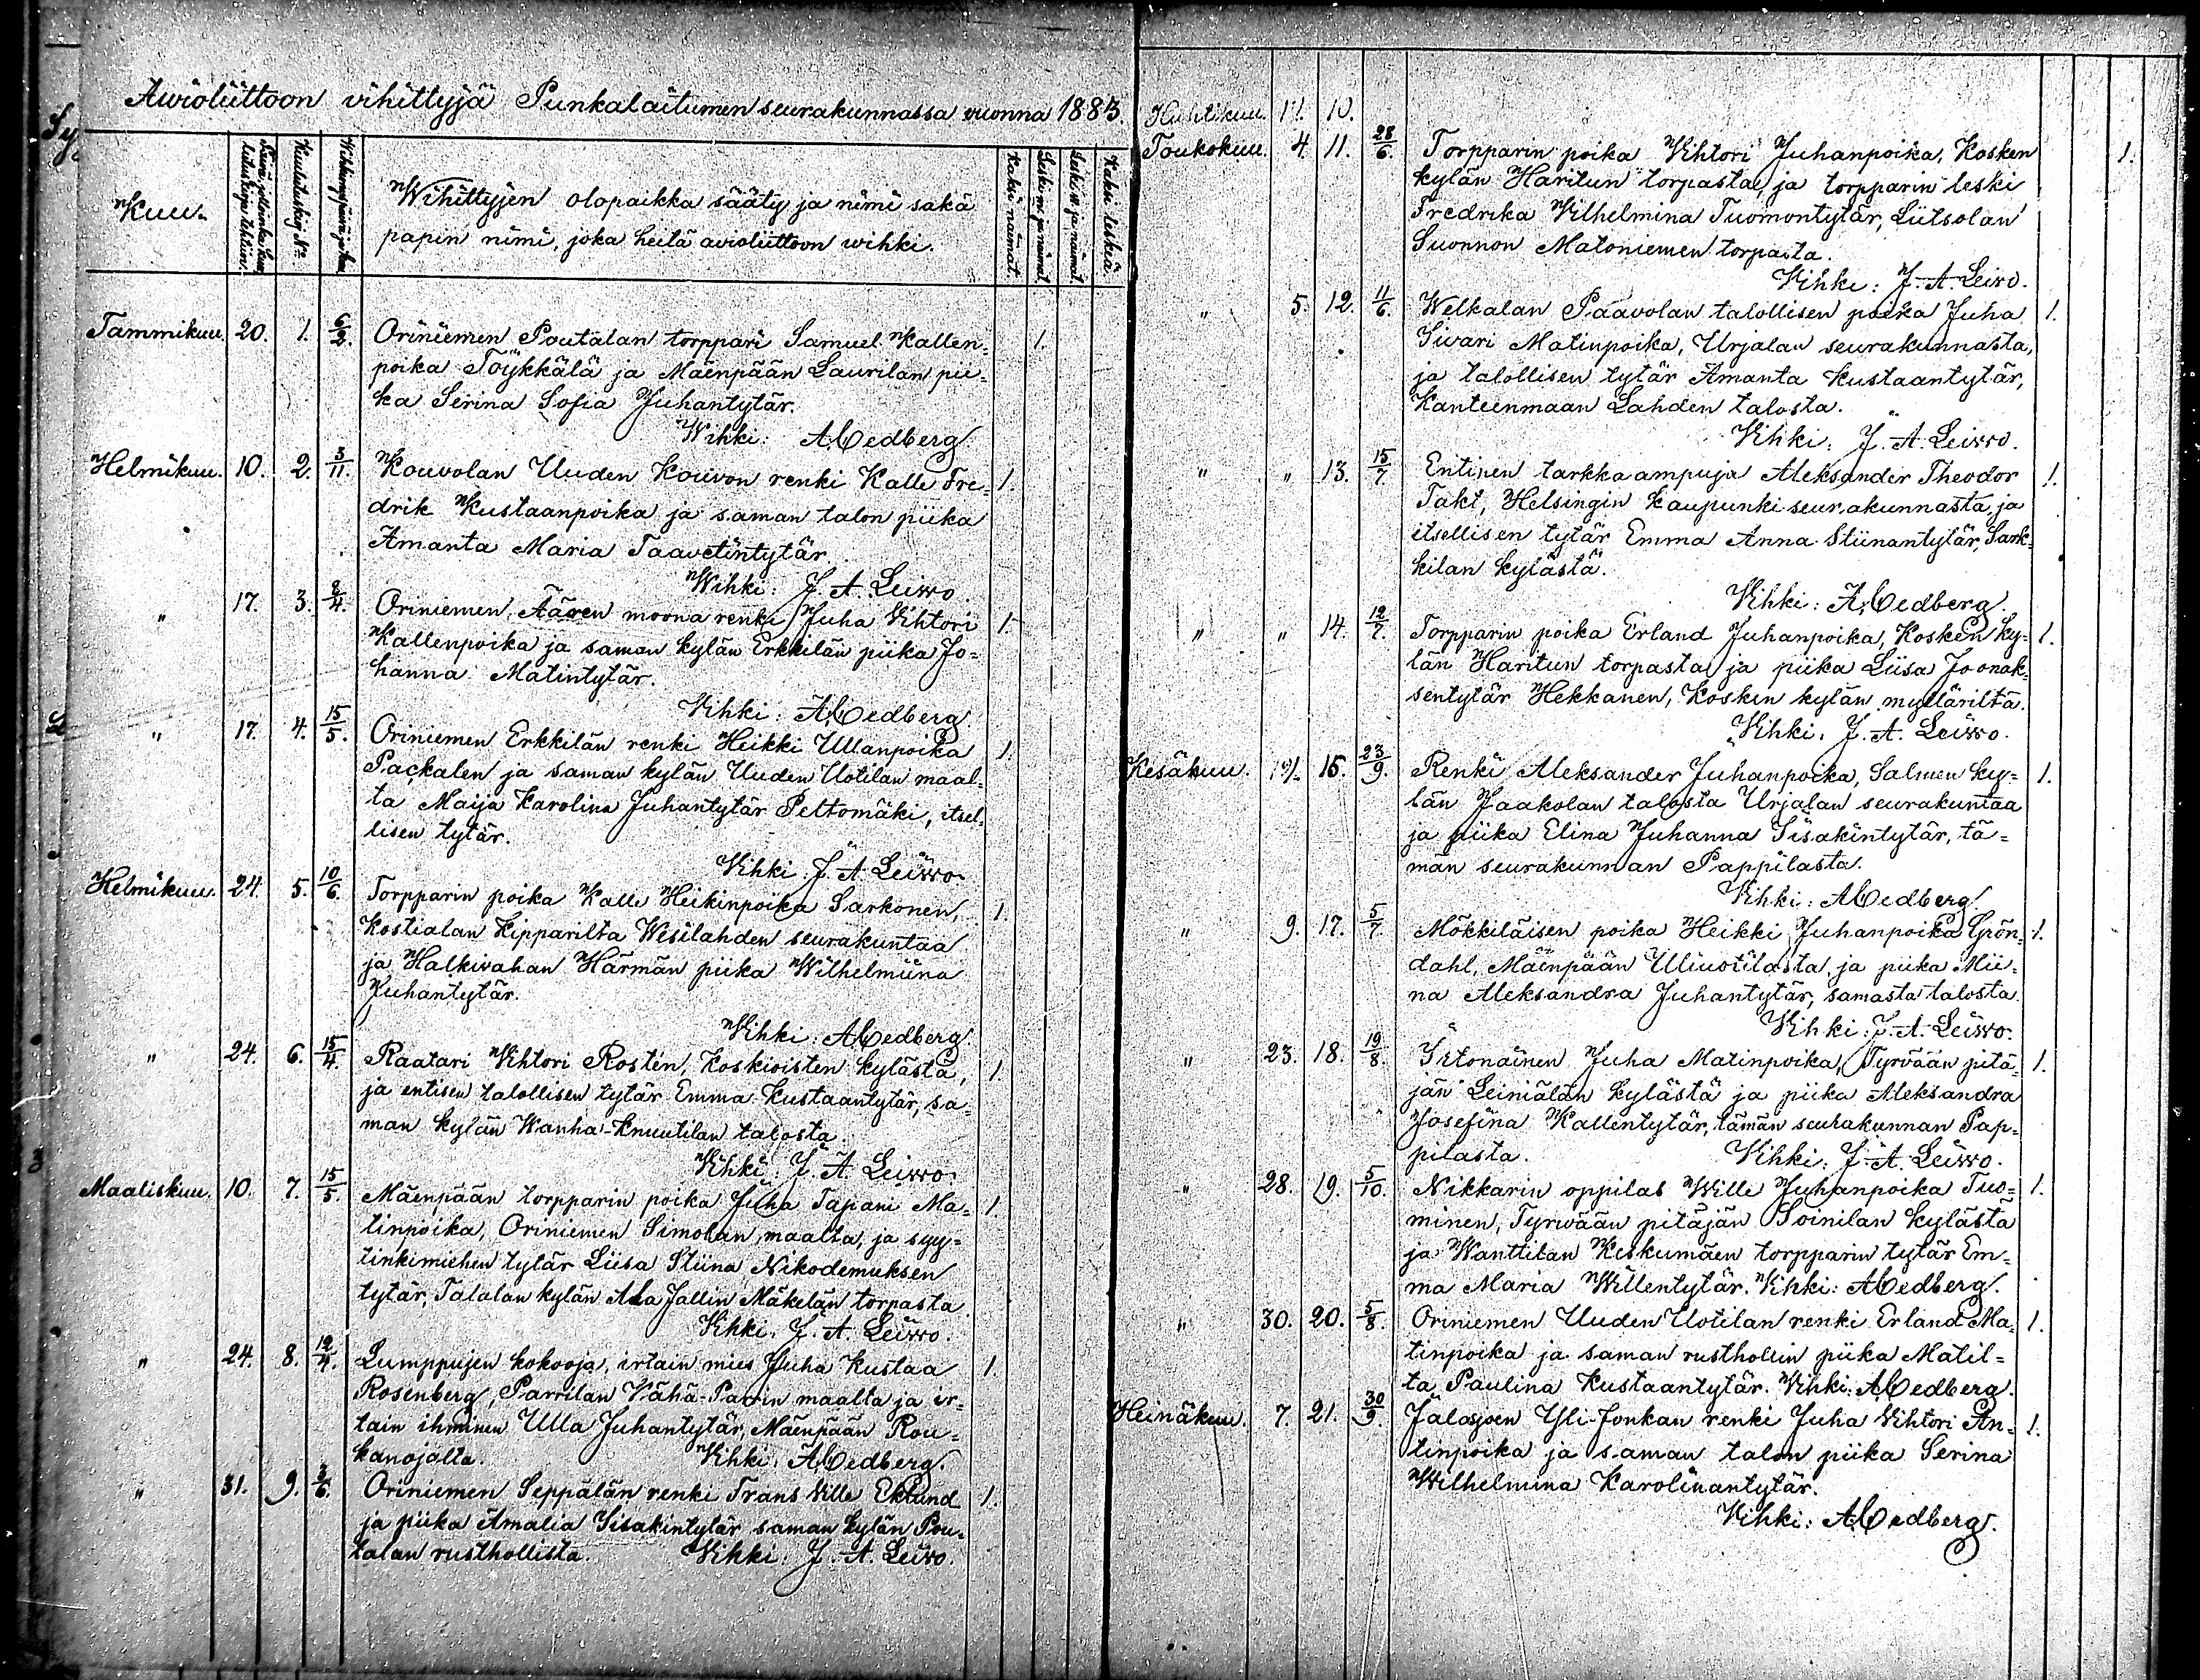 Awioliittoon vihittyjä Punkalaitumen seurakunnassa vuonna 1883.
Kuu.
Kuulutuskirj. No.
Wihittyjen olopaikka sääty ja nimi sekä
papin nimi, joka heitä avioliittoon wihki.
Kaksi naimat.
Kaksi leskeä.
Tammikuu. 20. 1. 6/2. Oriniemen Poutalan torppari Samuel Kallen- 1.
poika Töykkälä ja Mäenpään Laurilan pii-
ka Serina Sofia Juhantytär.
Wihki: A Cedberg.
Helmikuu. 10. 2. 3/11. Kouvolan Uuden Kouvon renki Kalle Fre- 1.
drik Kustaanpoika ja saman talon piika
Amanta Maria Taavetintytär
Wihki: J. A. Leiwo.
" 17. 3. 2/4. Oriniemen Äären moona renki Juha Vihtori 1.
Kallenpoika ja saman kylän Erkkilän piika Jo-
hanna Matintytär.
Vihki: A Cedberg
" 17. 4. 15/5. Oriniemen Erkkilän renki Heikki Ullanpoika 1.
Packalen ja saman kylän Uuden Uotilan maal-
ta Maija Karolina Juhantytär Peltomäki, itsel-
lisen tytär.
Vihki: J. A. Leiwo
Helmikuu. 24. 5. 10/6. Torpparin poika Kalle Heikinpoika Sarkonen, 1.
Kostialan Kipparilta Wesilahden seurakuntaa
ja Halkivahan Härmän piika Wilhelmiina
Juhantytär.
Vihki: A Cedberg.
" 24. 6. 15/4. Raatari Vihtori Rostén, Koskioisten kylästä, 1.
ja entisen talollisen tytär Emma Kustaantytär, sa-
man kylän Wanha-Knuutilan talosta.
Vihki: J. A. Leiwo.
Maaliskuu. 10. 7. 15/5. Mäenpään torpparin poika Juha Tapani Ma- 1.
tinpoika, Oriniemen Simolan maalta, ja syy-
tinkimiehen tytär Liisa Stiina Nikodemuksen
tytär, Talalan kylän Ala Jallin Mäkelän torpasta
Vihki. J. A. Leiwo.
" 24. 8. 12/4. Lumppujen kokooja, irtain mies Juha Kustaa 1.
Rosenberg, Parrilan Vähä-Parrin maalta ja ir-
tain ihminen Ulla Juhantytär, Mäenpään Rou-
kanojalta. Vihki: A Cedberg.
" 31. 9. 3/6. Oriniemen Seppälän renki Frans Ville Eklund 1.
ja piika Amalia Iisakintytär saman kylän Pou-
talan rusthollista. Vihki: J. A. Leiwo.
Huhtikuu. 10.
Toukokuu. 4. 11. 28/6. Torpparin poika Vihtori Juhanpoika, Kosken 1.
kylän Haritun torpasta, ja torpparin leski
Fredrika Vilhelmina Tuomontytär, Liitsolan
Suonnon Matoniemen torpasta.
Vihki: J. A. Leiwo.
" 5. 12. 11/6. Welkalan Paavolan talollisen poika Juha 1.
Iivari Matinpoika, Urjalan seurakunnasta,
ja talollisen tytär Amanta Kustaantytär,
Kanteenmaan Lahden talosta.
Vihki: J. A. Leiwo.
" " 13. 15/7. Entinen tarkkaampuja Aleksander Theodor 1.
Takt, Helsingin kaupunkiseurakunnasta, ja
itsellisen tytär Emma Anna Stiinantytär, Sark-
kilan kylästä.
Vihki: A Cedberg.
" " 14. 12/7. Torpparin poika Erland Juhanpoika, Kosken ky- 1.
län Haritun torpasta ja piika Liisa Joonak-
sentytär Hekkanen, Kosken kylän mylläriltä.
Vihki. J. A. Leiwo.
Kesäkuu. 15. 23/9. Renki Aleksander Juhanpoika, Salmen ky- 1.
län Jaakolan talosta Urjalan seurakuntaa
ja piika Elina Juhanna Iisakintytär, tä-
män seurakunnan Pappilasta.
Vihki: A Cedberg.
" 9. 17. 5/7. Mökkiläisen poika Heikki Juhanpoika Grön- 1.
dahl, Mäenpään Uliuotilasta, ja piika Mii-
na Aleksandra Juhantytär, samasta talosta.
Vihki: J. A. Leiwo.
" 23. 18. 19/8. Irtonainen Juha Matinpoika, Tyrvään pitä- 1.
jän Leiniälän kylästä ja piika Aleksandra
Josefina Kallentytär, tämän seurakunnan Pap-
pilasta. Vihki: J. A. Leiwo.
" 28. 19. 5/10. Nikkarin oppilas Wille Juhanpoika Tuo- 1.
minen, Tyrwään pitäjän Soinilan kylästä
ja Wanttilan Keskumäen torpparin tytär Em-
ma Maria Willentytär. Vihki: A Cedberg.
" 30. 20. 5/8. Oriniemen Uuden Uotilan renki Erland Ma- 1.
tinpoika ja saman rusthollin piika Matil-
ta Paulina Kustaantytär. Vihki: A Cedberg.
Heinäkuu. 7. 21. 30/9. Jalasjoen Yli-Jonkan renki Juha Vihtori An- 1.
tinpoika ja saman talon piika Serina
Wilhelmina Karolinantytär.
Vihki: A Cedberg.